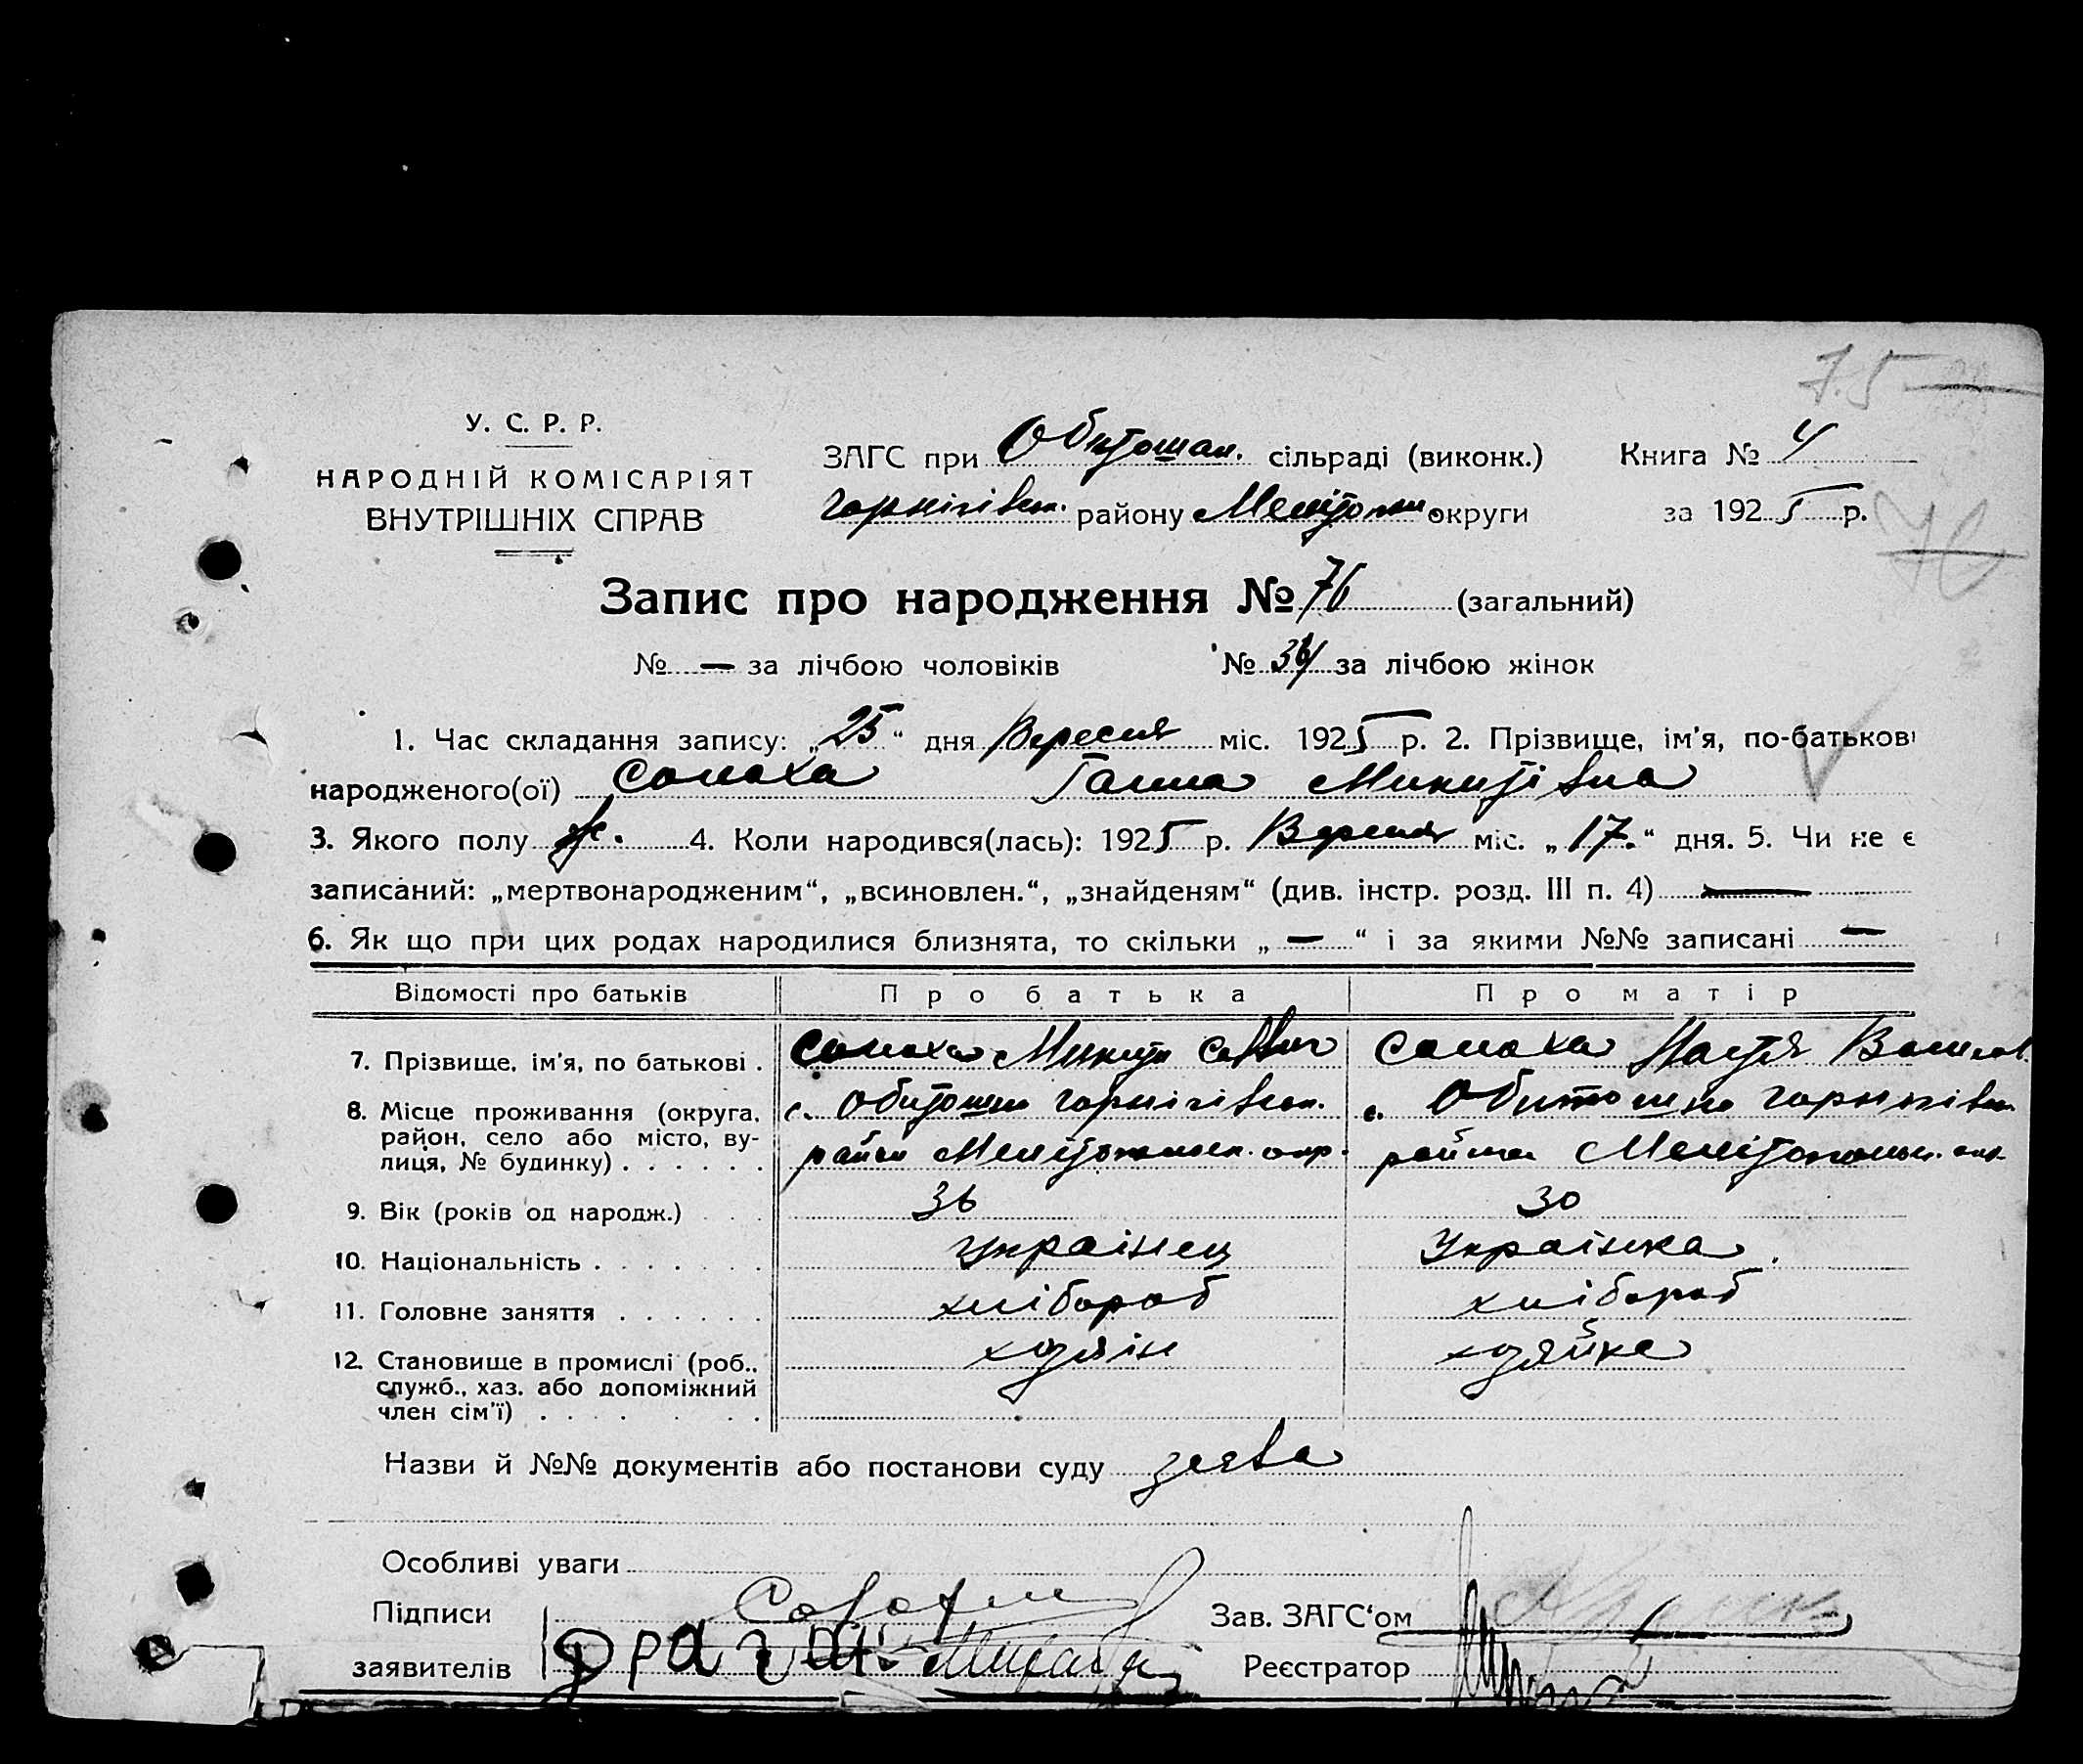 75
У. С. Р. Р.
НАРОДНІЙ КОМІСАРІЯТ
ВНУТРІШНІХ СПРАВ
ЗАГС при Обиточан. сільраді (виконк.) Книга № 4
Чернігівськ. району Мелітопольськ. округи за 1925 р.
76
Запис про народження № 76 (загальний)
№ — за лічбою чоловіків № 34 за лічбою жінок
1. Час складання запису: „25“ дня Вересня міс. 1925 р. 2. Прізвище, ім'я, по-батькові
народженого(ої) Самоха Ганна Микитівна
3. Якого полу ж. 4. Коли народився(лась): 1925 р. Вересня міс. „17.“ дня. 5. Чи не є
записаний: „мертвонародженим“, „всиновлен.“, „знайденям“ (див. інстр. розд. III п. 4) —
6. Як що при цих родах народилися близнята, то скільки „—“ і за якими №№ записані —
Відомості про батьків Про батька Про матір
7. Прізвище, ім'я, по батькові . Самоха Микита Самоха Настя
8. Місце проживання (округа, район, село або місто, вулиця, № будинку) . . . . . .
с. Обиточни Чернігівськ. с. Обиточна Чернігівськ.
района Мелітопольськ. окр. района Мелітопольськ. окр.
9. Вік (років од народж.) . . . 36 30
10. Національність . . . . . . . українец Українка.
11. Головне заняття . . . . . . хлібороб хлібороб
12. Становище в промислі (роб., служб., хаз. або допоміжний член сім'ї) . . . . . . хозяїн хозяйка
Назви й №№ документів або постанови суду заява
Особливі уваги
Підписи Зав. ЗАГС'ом
заявителів Реєстратор